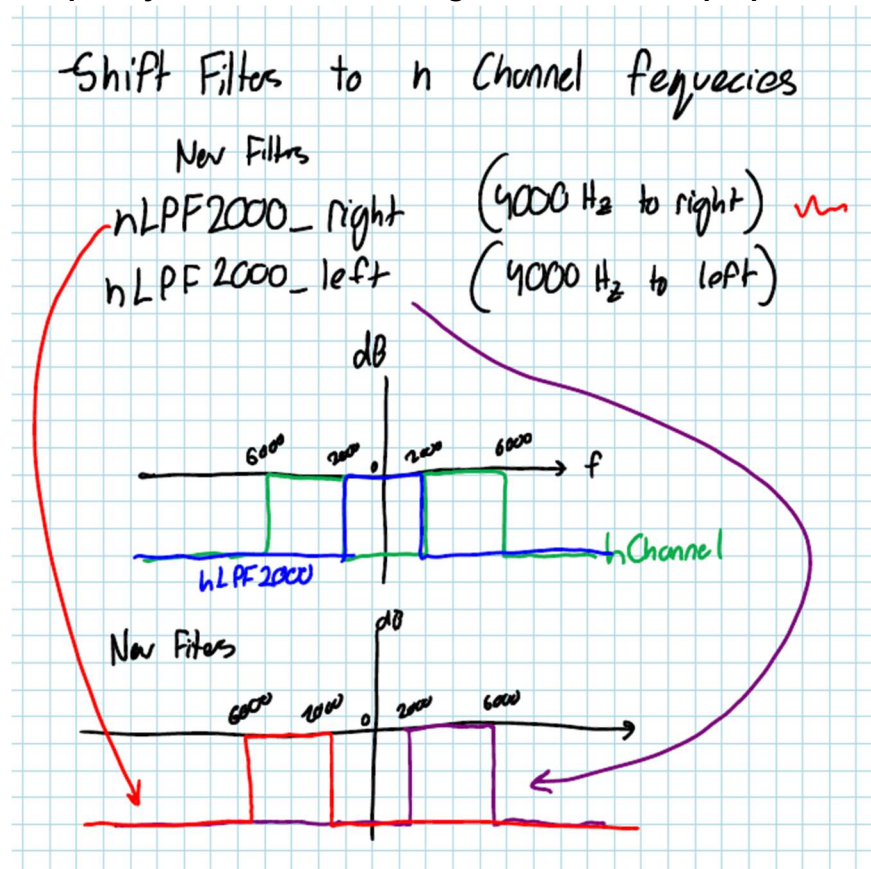 -Shift Filtes to h Channel fequecies
New Filtrs
hLPF2000_right (4000 Hz to right)
hLPF2000_left (4000 Hz to left)
dB
6000 2000 0 2000 6000 f
hChannel
hLPF2000
dB
New Fiters
6000 2000 0 2000 6000